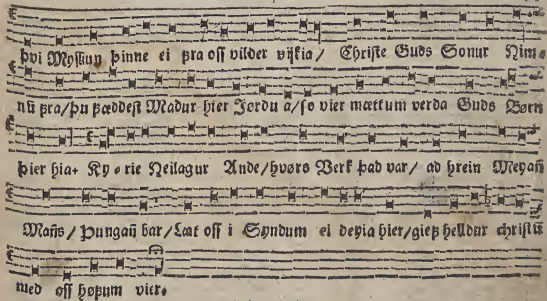 þvi Myskun þinne ei fra oss vilder vijkia / Christe Guds Sonur Him-
nū fra / þu fæddest Madur hier Jordu a / so vier mættum verda Guds Børn
þier hia. Ky-rie Heilagur Ande / hvørs Verk þad var / ad hrein Meyañ
Mañs / Þungañ bar / Læt oss i Syndum ei deyia hier / gief helldur christū
med oss høfum vier.